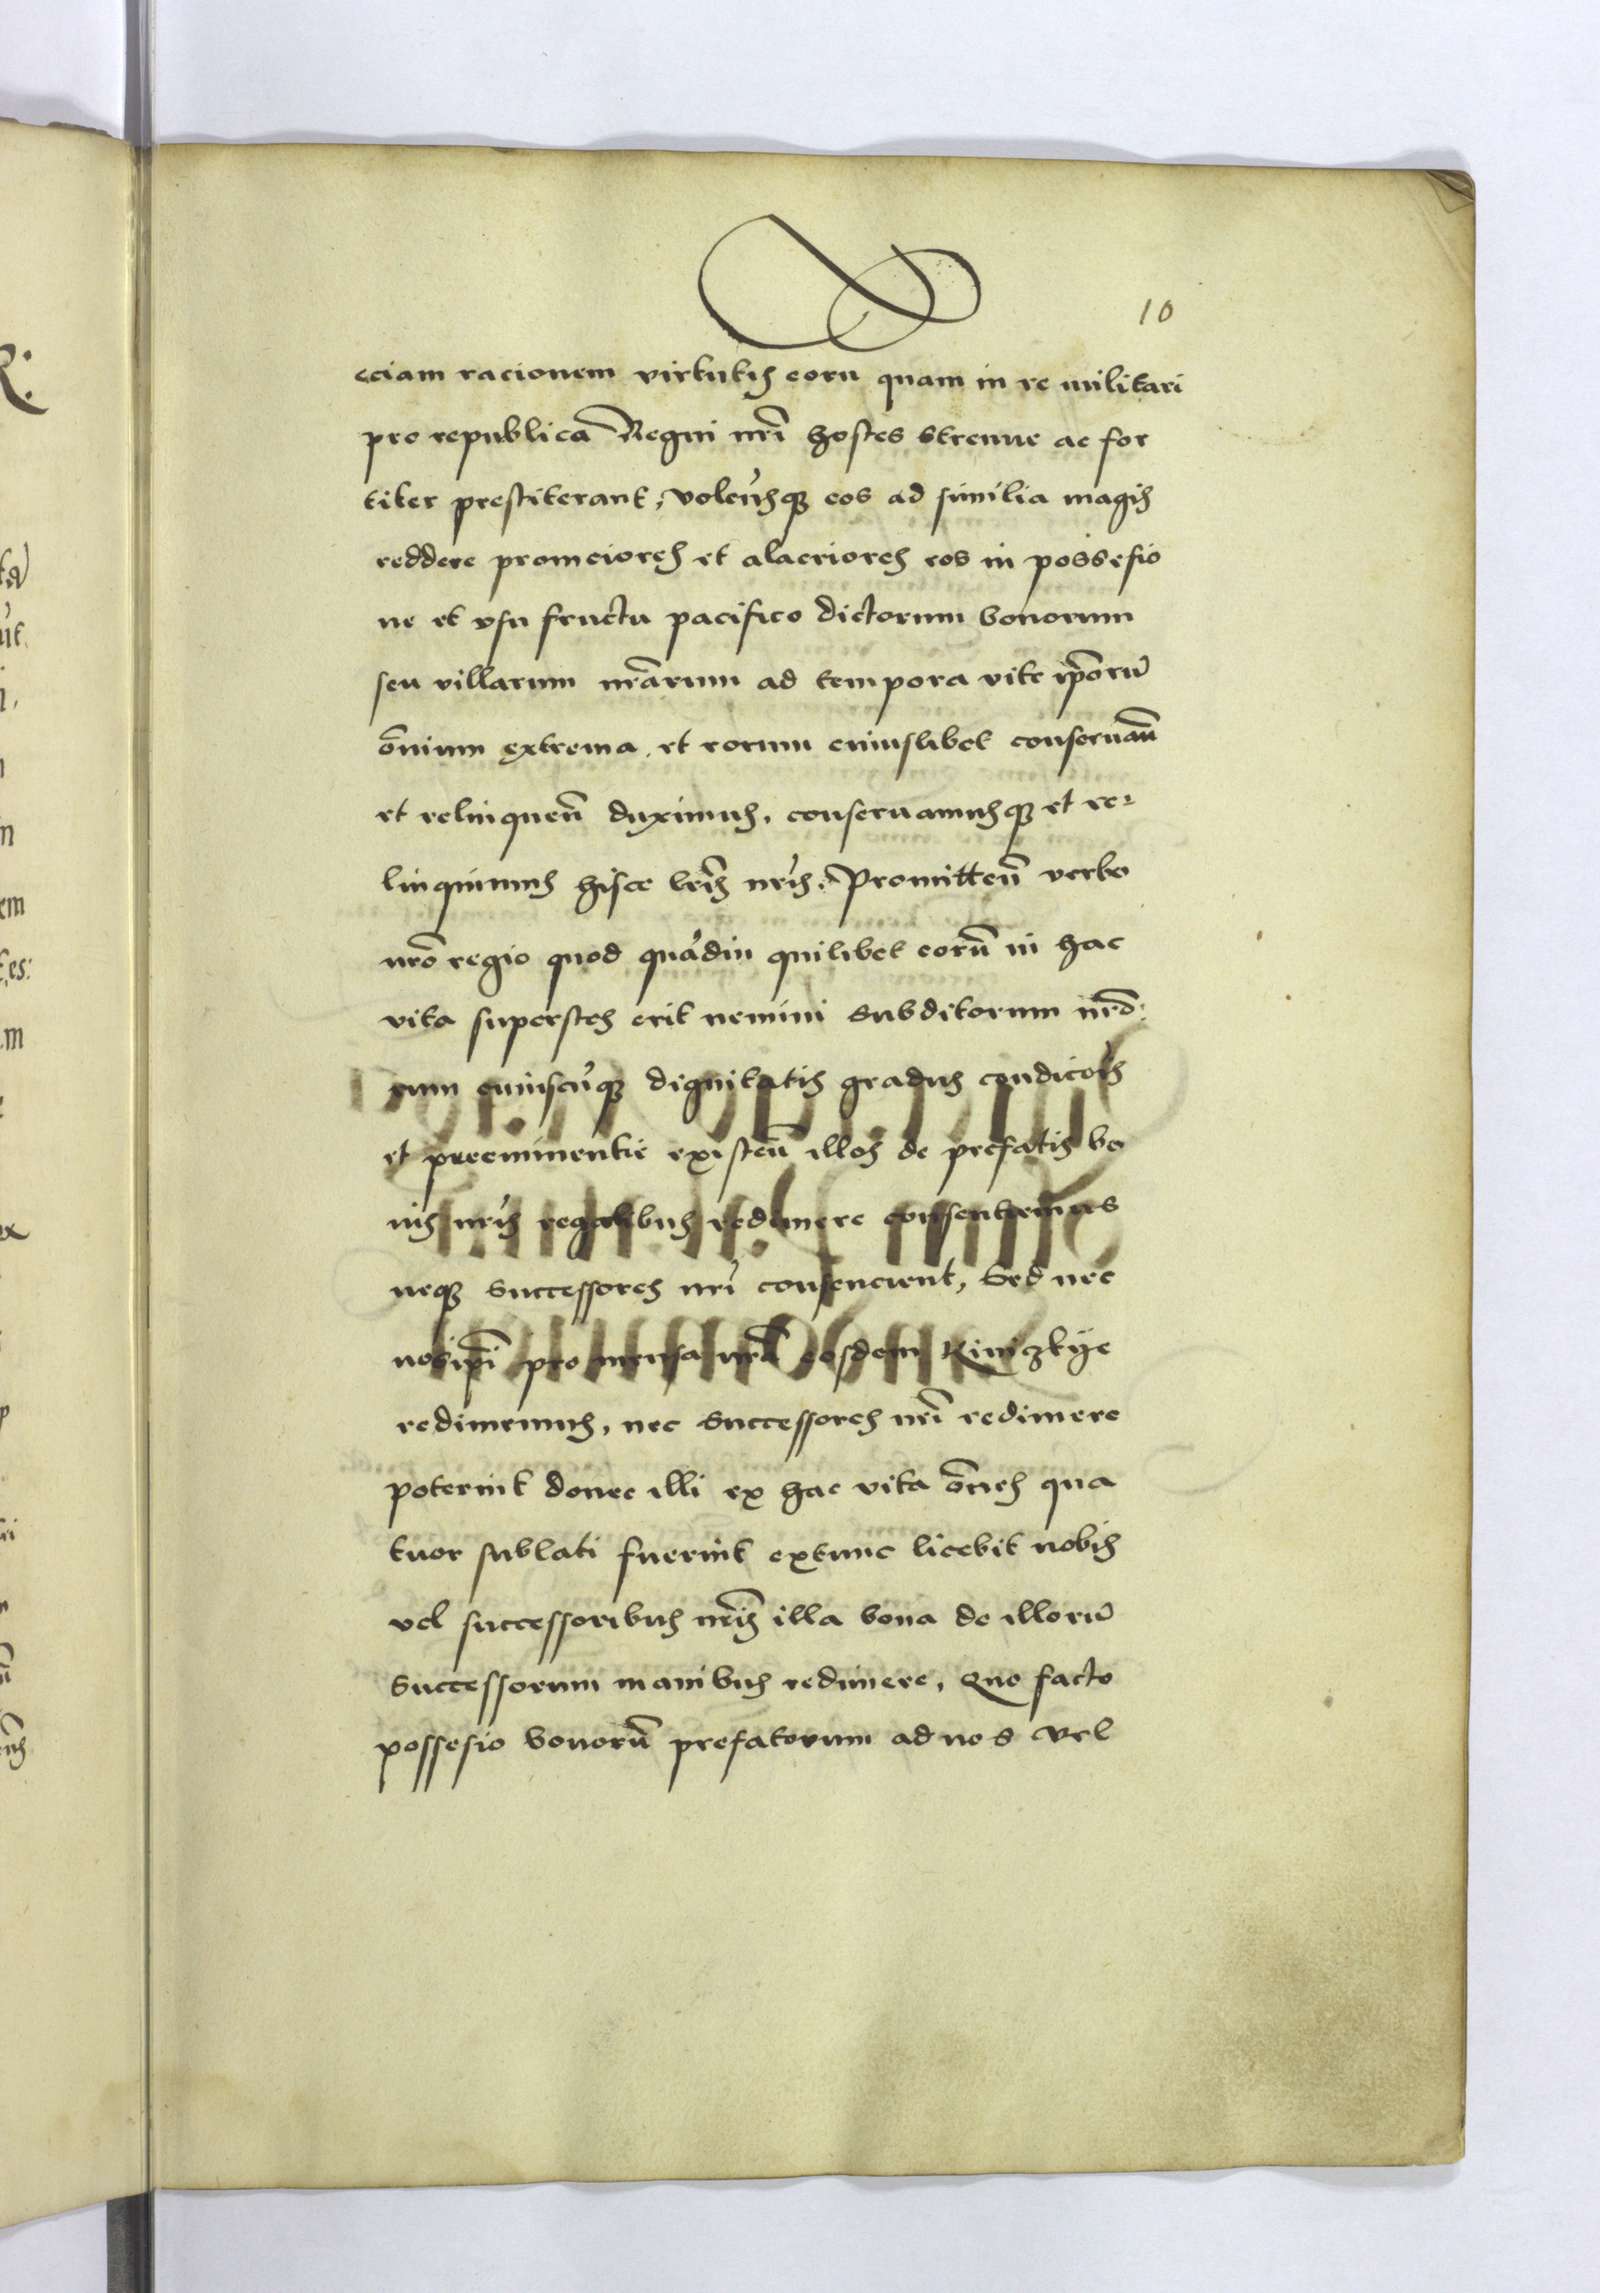 10
eciam racionem virtutis eoru quam in re militari
pro republica Regni nrĩ hostes strenue ac for
titer prestiterant, volẽtesq eos ad similia magis
reddere promciores et alacriores eos in possesio
ne et vsu fructu pacifico dictorum bonorum
seu villarum nrãrum ad tempora vite ip̃orũ
õnium extrema et eorum cuiuslibet conseruañ
et relinqueñ duximus, conseruamusq et re-
linquimus hisce lrĩs nrĩs. Promitteñ verbo
nrõ regio quod quãdiu quilibet eorũ in hac
vita superstes erit nemini subditorum nrõ-
rum cuiuscũq dignitatis gradus condicõis
et preeminentie existeñ illos de prefatis bo
nis nrĩs regalibus redimere consentiemus
neq successores nrĩ consencient, Sed nec
nosip̃i pro mensa nrã eosdem Rimizkÿe
redimemus, nec successores nrĩ redimere
poterint donec illi ex hac vita õnes qua
tuor sublati fuerint extunc licebit nobis
vel successoribus nrĩs illa bona de illorũ
successorum manibus redimere, Quo facto
possesio bonorũ prefatorum ad nos vel